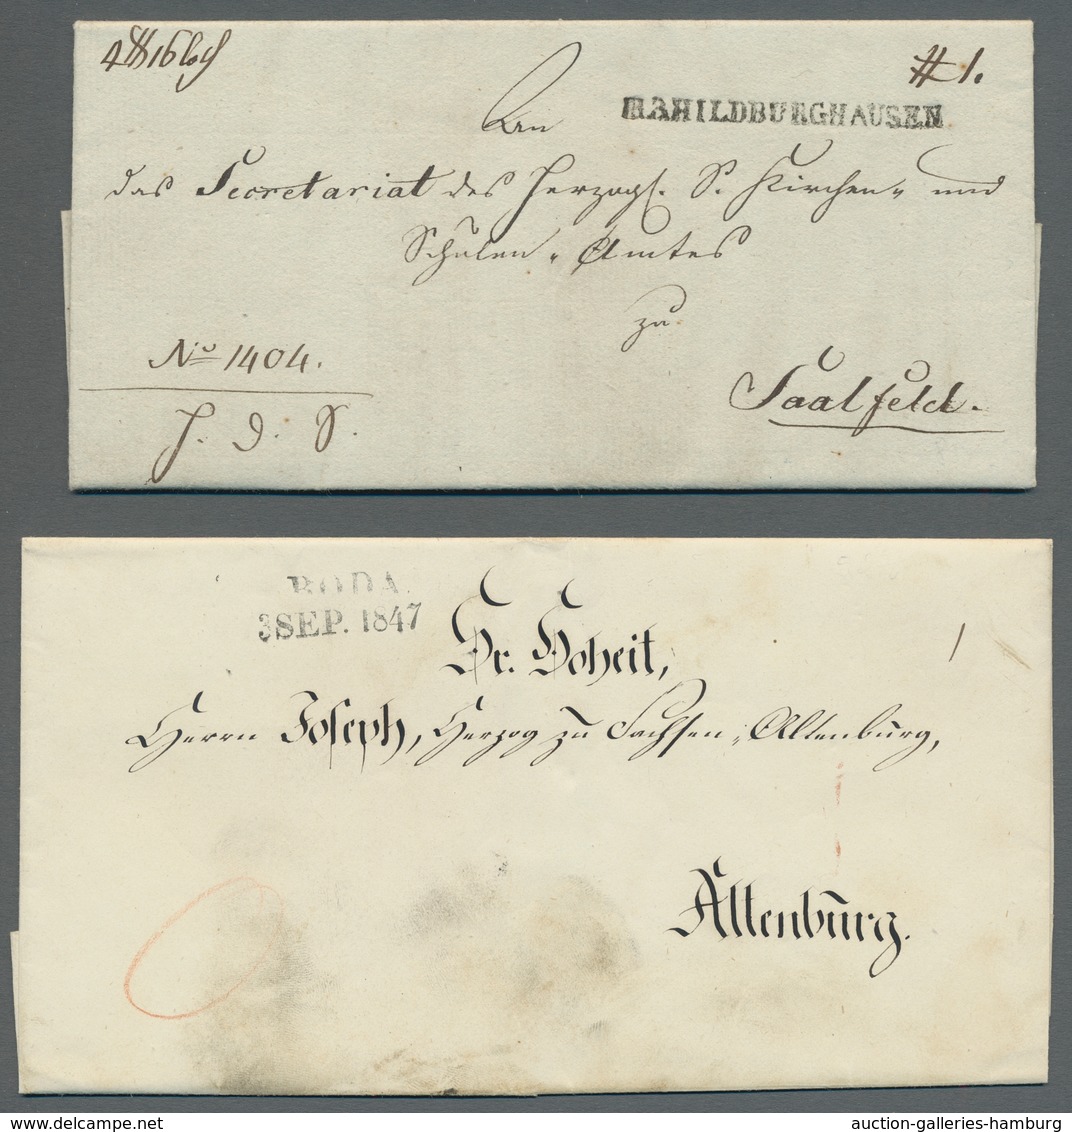 # 1.
R.3.HILDBURGHAUSEN
An
das Secretariat des Herzogl. S. Kirchen- und
Schulen-Amtes
zu
No 1404.
Saalfeld.
H. D. S.
RODA.
3 SEP. 1847
Sr. Hoheit,
Herrn Joseph, Herzog zu Sachsen-Altenburg,
Altenburg.
www.delcampe.net
auction-galleries-hamburg